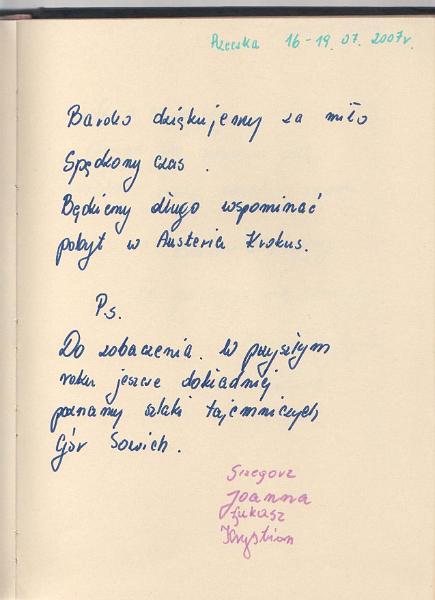 Rzeczka 16-19.07.2007r.
Bardzo dziękujemy za miło
Spędzony czas.
Będziemy długo wspominać
pobyt w Austeria Krokus.
P.s.
Do zobaczenia. W przyszłym
roku jeszcze dokładniej
poznamy szlaki tajemniczych
Gór Sowich.
Grzegorz
Joanna
Łukasz
Krystian